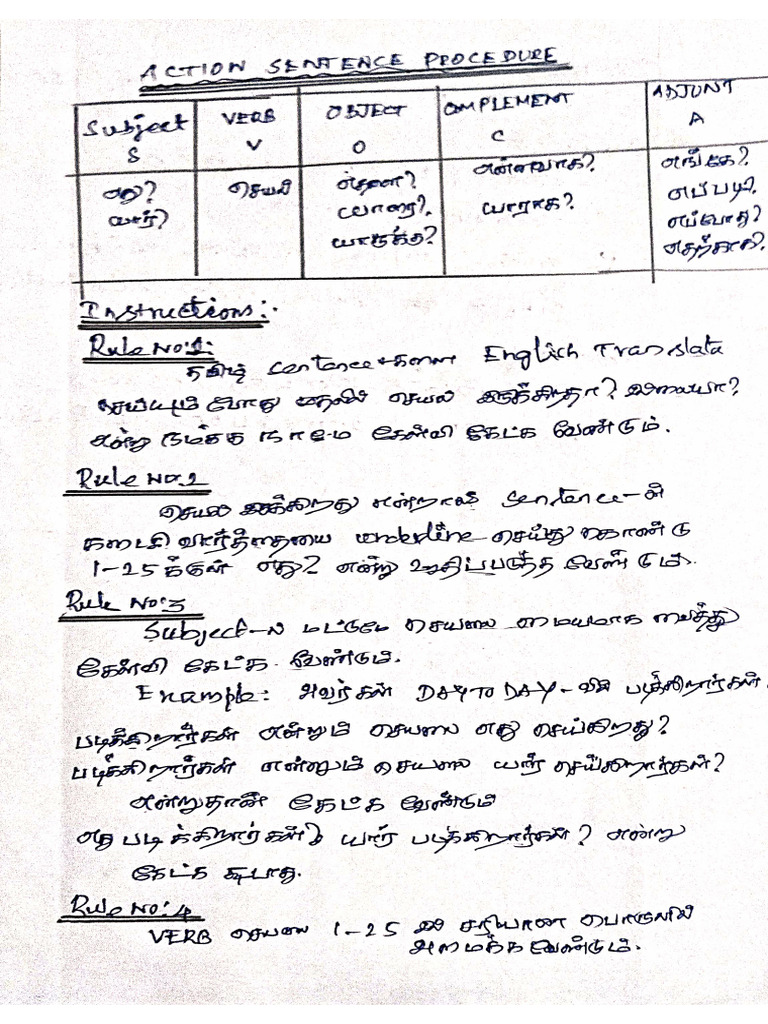 ACTION SENTENCE PROCEDURE
Subject VERB OBJECT COMPLEMENT ADJUNT
S V O C A
எது? செயல் எதனை? என்னவாக? எங்கே?
யார்? யாரை? யாராக? எப்படி?
யாருக்கு? எப்போது?
எதற்காக?
Instructions:-
Rule No:1:
தமிழ் Sentence-களை English Translate
செய்யும் போது முதலில் செயல் இருக்கிறதா? இல்லையா?
என்று நமக்கு நாமே கேள்வி கேட்க வேண்டும்.
Rule No.2
செயல் இருக்கிறது என்றால் Sentence-ன்
கடைசி வார்த்தையை underline செய்து கொண்டு
1-25க்குள் எது? என்று உறுதிப்படுத்த வேண்டும்.
Rule No:3
Subject-ல் மட்டுமே செயலை மையமாக வைத்து
கேள்வி கேட்க வேண்டும்.
Example: அவர்கள் DAY TO DAY-வில் படிக்கிறார்கள்.
படிக்கிறார்கள் என்னும் செயலை எது செய்கிறது?
படிக்கிறார்கள் என்னும் செயலை யார் செய்கிறார்கள்?
என்றுதான் கேட்க வேண்டும்
எது படிக்கிறார்கள்? யார் படிக்கிறார்கள்? என்று
கேட்க கூடாது.
Rule No:4
VERB செயலை 1-25 இல் சரியான பொருளில்
அமைக்க வேண்டும்.